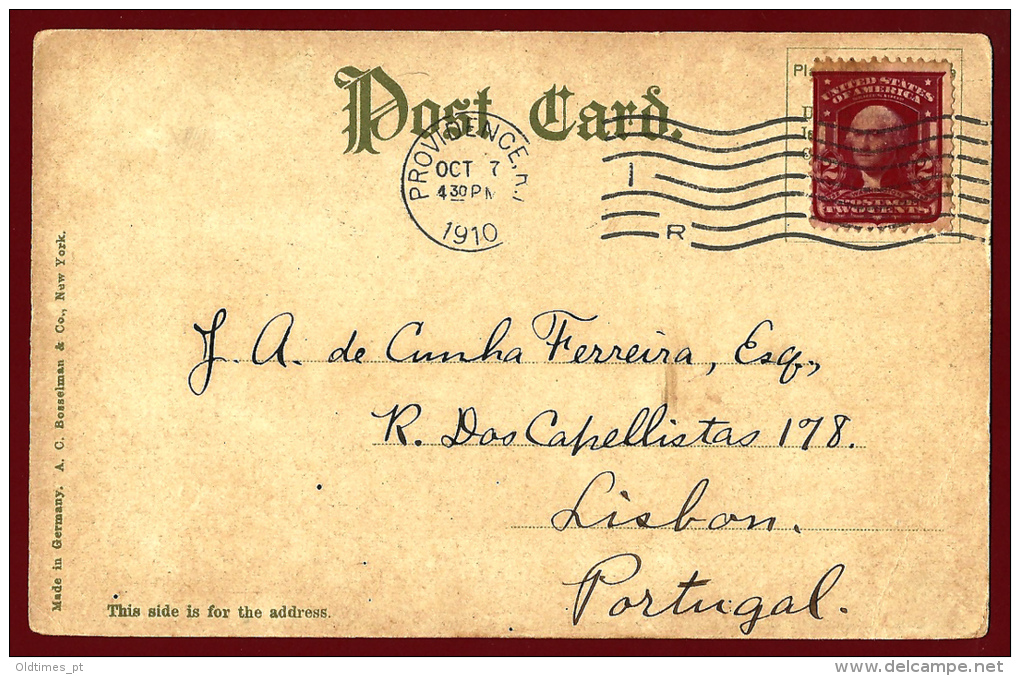 Post Card.
PROVIDENCE, R.I.
OCT 7
4 30 PM
1910
I
R
UNITED STATES
OF AMERICA
2 2
TWO CENTS
J. A. de Cunha Ferreira, Esq.,
R. Dos Capellistas 178.
Lisbon.
Portugal.
Made in Germany. A. C. Bosselman & Co., New York.
This side is for the address.
Oldtimes_pt
www.delcampe.net